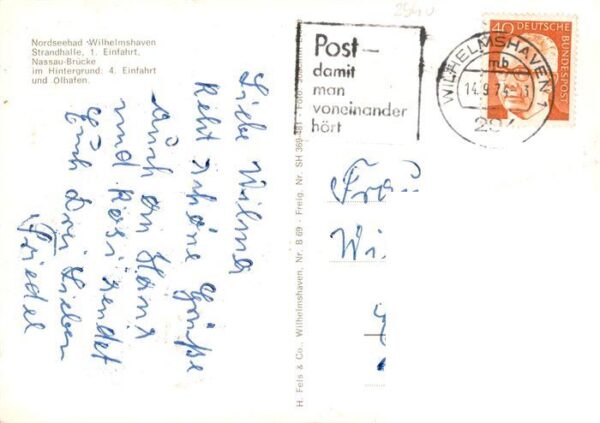 2940
Nordseebad Wilhelmshaven
Strandhalle, 1. Einfahrt.
Nassau-Brücke
im Hintergrund: 4. Einfahrt
und Ölhafen.
Liebe Wilma
Recht schöne Grüße
Auch an Hans
und Rosi sendet
Euch Drei Lieben
Friedel
H. Fels & Co., Wilhelmshaven, Nr. B 69 · Freig. Nr. SH 369-481 · Foto:
Post-
damit
man
voneinander
hört
WILHELMSHAVEN 1
mb
14.9.73
294
40
DEUTSCHE
BUNDESPOST
Frau
Wi